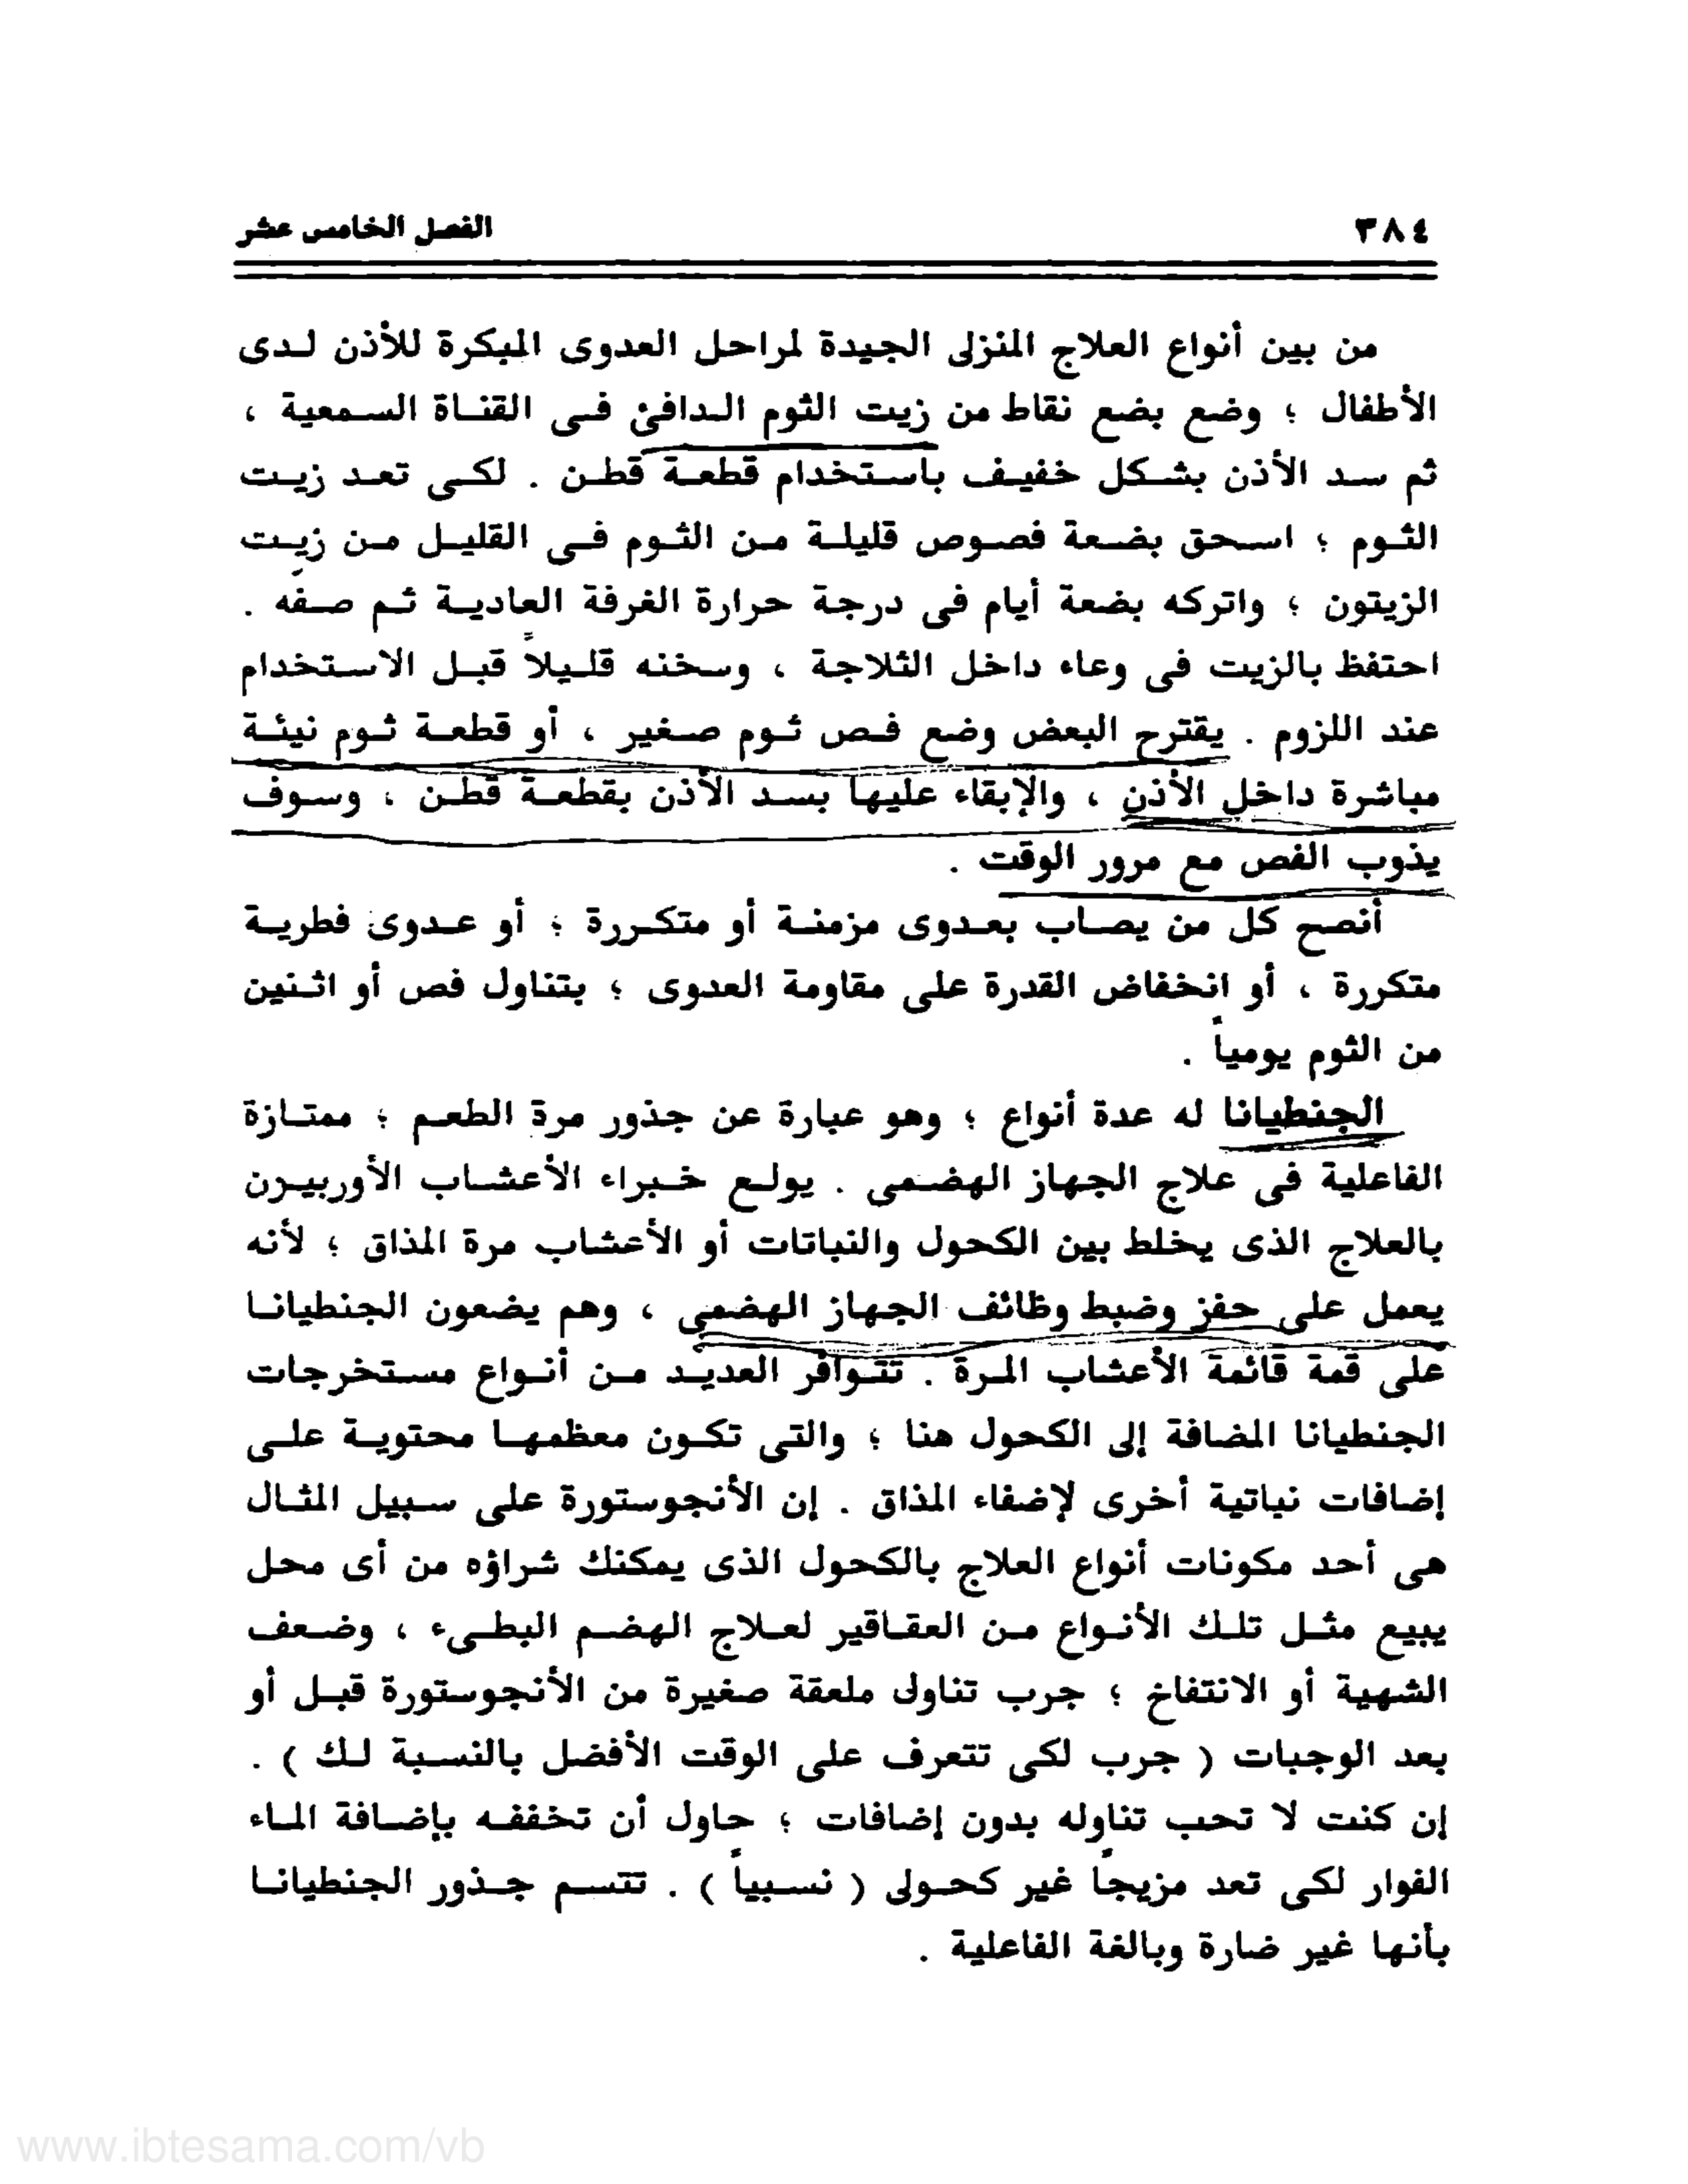 ٣٨٤ الفصل الخامس عشر
من بين أنواع العلاج المنزلى الجيدة لمراحل العدوى المبكرة للأذن لـدى
الأطفال ؛ وضع بضع نقاط من زيت الثوم الـدافئ فـى القنـاة السـمعية ،
ثم سـد الأذن بشـكل خفيـف باسـتخدام قطعـة قطـن . لكـى تعـد زيـت
الثـوم ؛ اسـحق بضـعة فصـوص قليلـة مـن الثـوم فـى القليـل مـن زيـت
الزيتون ؛ واتركه بضعة أيام فى درجة حرارة الغرفة العاديـة ثـم صـفِّه .
احتفظ بالزيت فى وعاء داخل الثلاجة ، وسخنه قلـيلاً قبـل الاسـتخدام
عند اللزوم . يقترح البعض وضع فـص ثـوم صـغير ، أو قطعـة ثـوم نيئـة
مباشرة داخل الأذن ، والإبقاء عليها بسـد الأذن بقطعـة قطـن ، وسـوف
يذوب الفص مع مرور الوقت .
أنصح كل من يصـاب بعـدوى مزمنـة أو متكـررة ؛ أو عـدوى فطريـة
متكررة ، أو انخفاض القدرة على مقاومة العدوى ؛ بتناول فص أو اثـنين
من الثوم يومياً .
الجنطيانا له عدة أنواع ؛ وهو عبارة عن جذور مرة الطعـم ؛ ممتـازة
الفاعلية فى علاج الجهاز الهضـمى . يولـع خـبراء الأعشـاب الأوربيـرن
بالعلاج الذى يخلط بين الكحول والنباتات أو الأعشاب مرة المذاق ؛ لأنه
يعمل على حفز وضبط وظائف الجهاز الهضمى ، وهم يضعون الجنطيانـا
على قمة قائمة الأعشاب المـرة . تتـوافر العديـد مـن أنـواع مسـتخرجات
الجنطيانا المضافة إلى الكحول هنا ؛ والتى تكـون معظمهـا محتويـة علـى
إضافات نباتية أخرى لإضفاء المذاق . إن الأنجوستورة على سـبيل المثـال
هى أحد مكونات أنواع العلاج بالكحول الذى يمكنك شراؤه من أى محل
يبيع مثـل تلـك الأنـواع مـن العقـاقير لعـلاج الهضـم البطـىء ، وضـعف
الشهية أو الانتفاخ ؛ جرب تناول ملعقة صغيرة من الأنجوستورة قبـل أو
بعد الوجبات ( جرب لكى تتعرف على الوقت الأفضل بالنسـبة لـك ) .
إن كنت لا تحب تناوله بدون إضافات ؛ حاول أن تخففـه بإضـافة المـاء
الفوار لكى تعد مزيجاً غير كحـولى ( نسـبياً ) . تتسـم جـذور الجنطيانـا
بأنها غير ضارة وبالغة الفاعلية .
www.ibtesama.com/vb